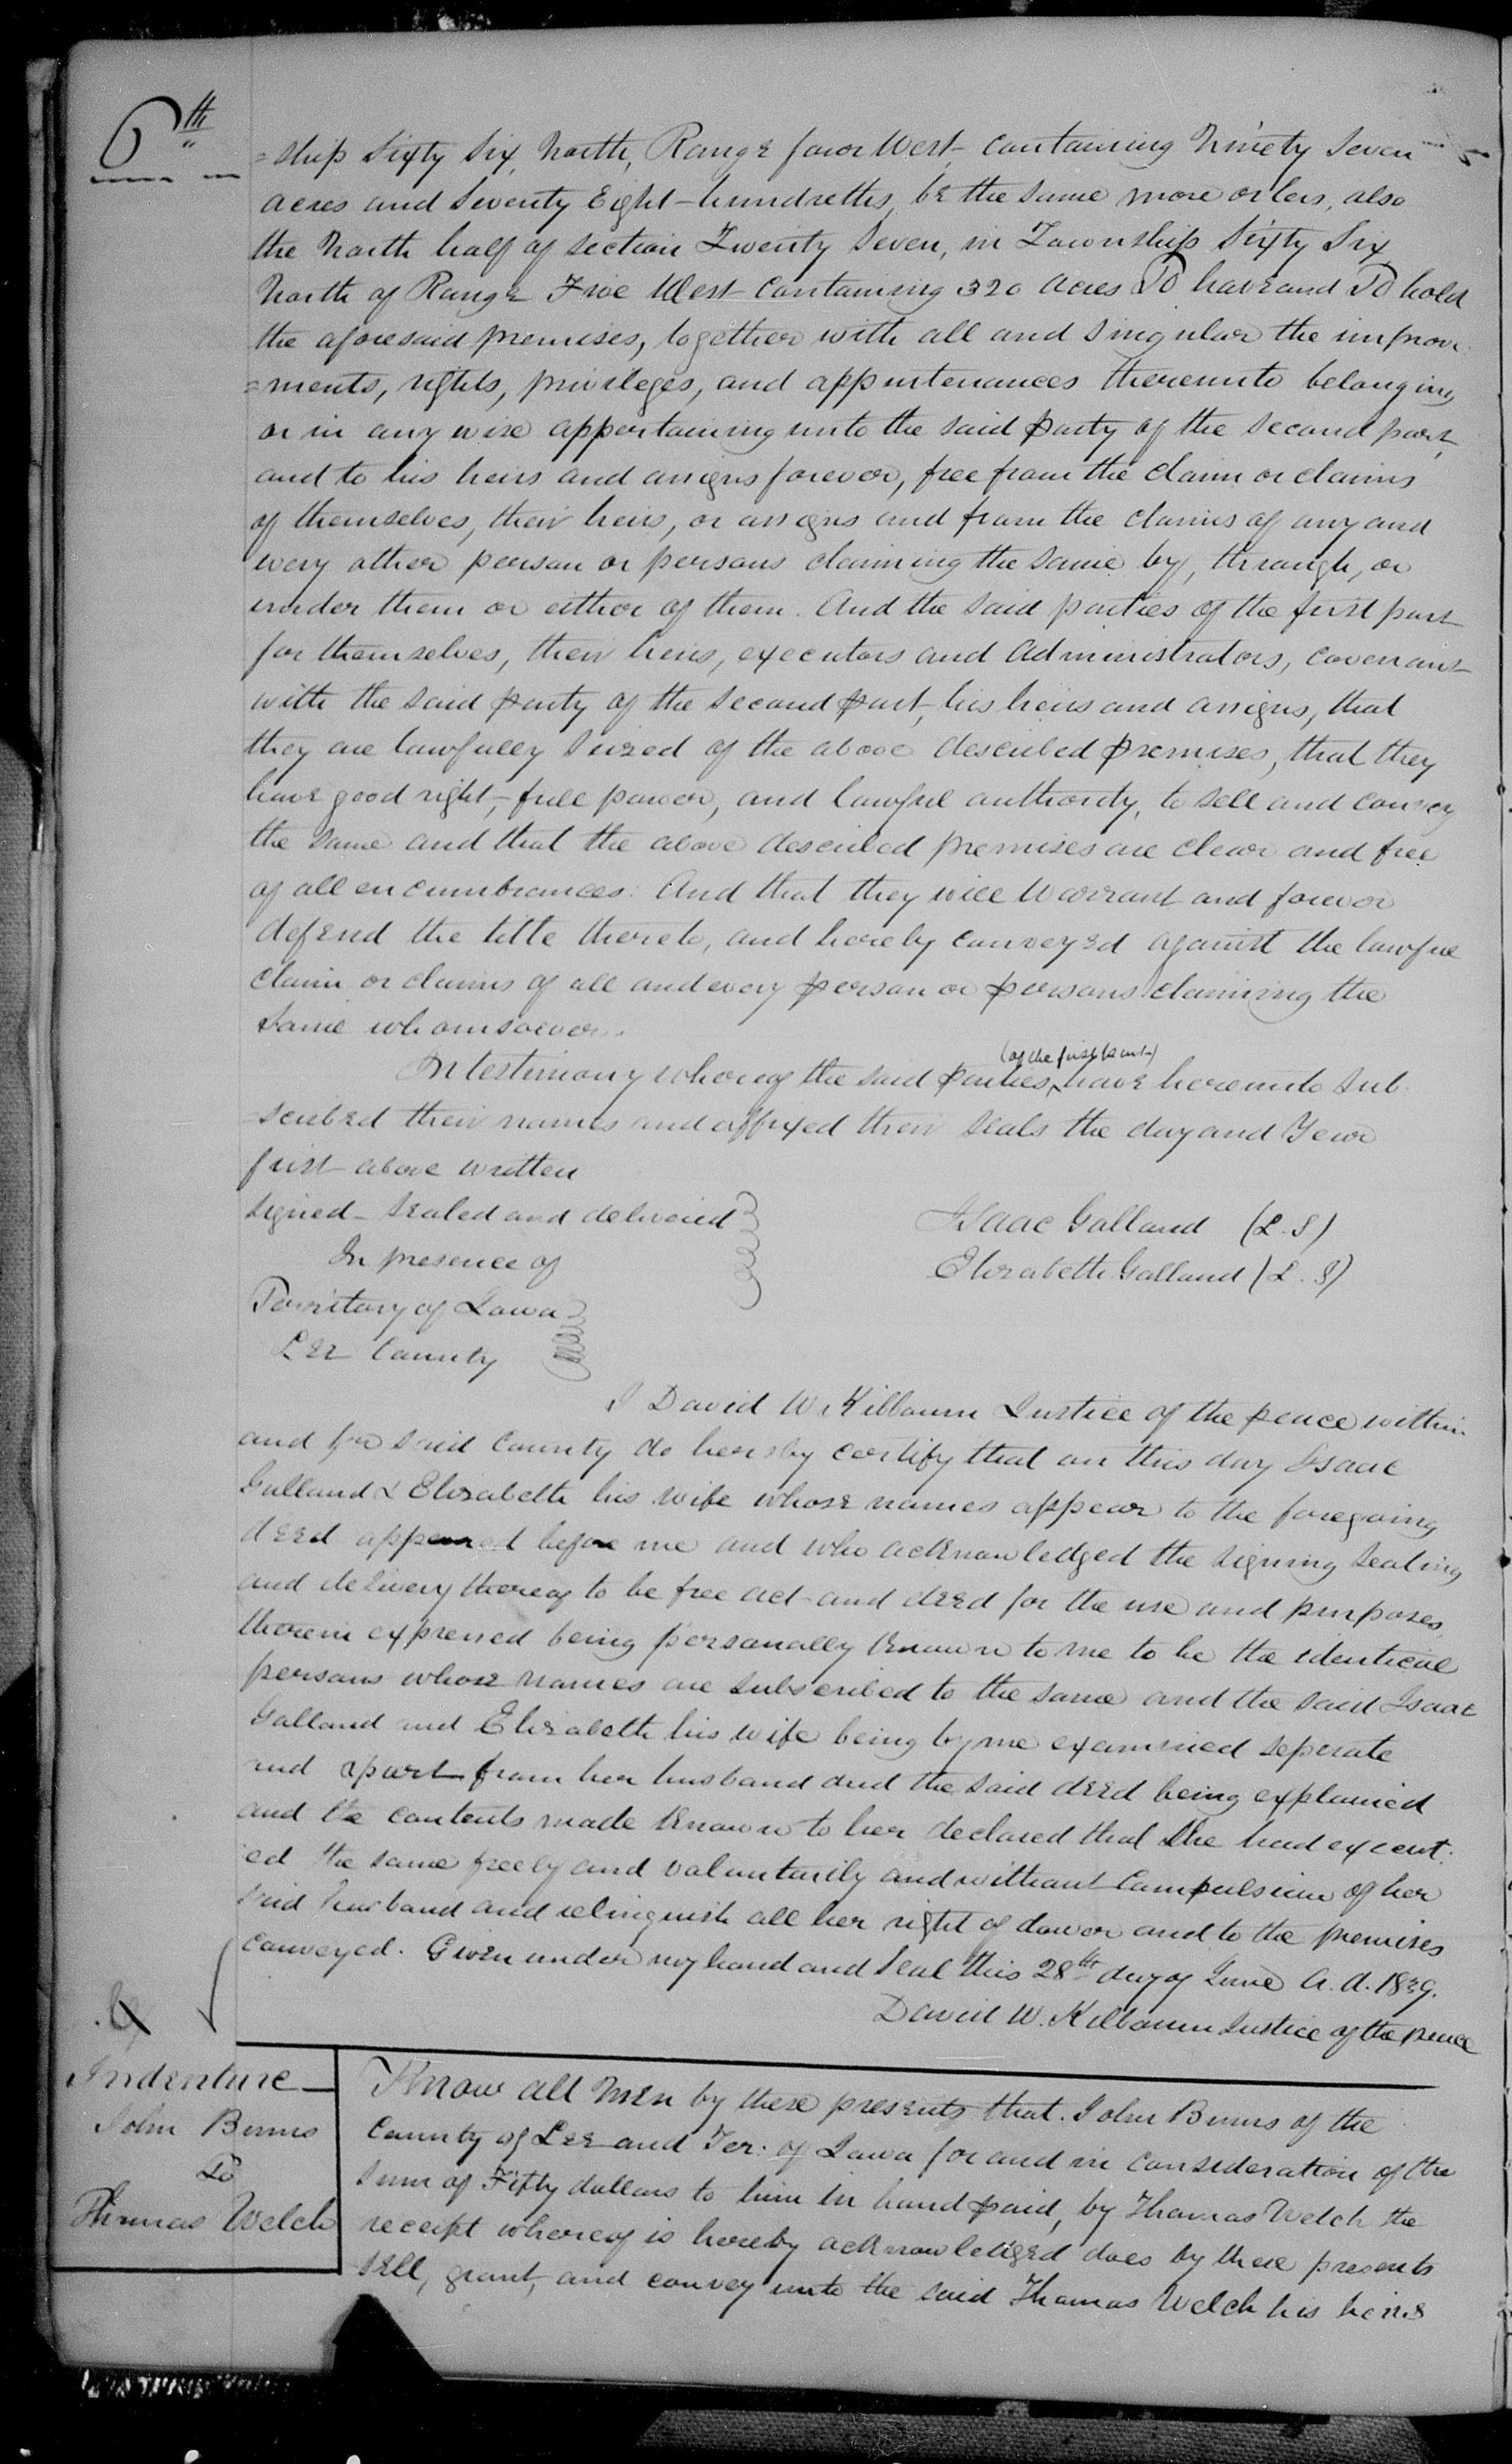 6th
=ship Sixty Six, North, Range four West, containing Ninety Seven
acres and Seventy Eight-hundretths, be the same more or less, also
the North half of section Twenty Seven, in Township Sixty Six
North of Range Five West containing 320 acres To have and To hold
the aforesaid premises, together with all and singular the improve
=ments, rights, privileges, and appurtenances thereunto belonging
or in any wise appertaining unto the said party of the second part,
and to his heirs and assigns forever, free from the claim or claims
of themselves, their heirs, or assigns and from the claims of any and
every other person or persons claiming the same by, through, or
under them or either of them. And the said parties of the first part
for themselves, their heirs, executors and administrators, covenant
with the said party of the second part, his heirs and assigns, that
they are lawfully seized of the above described premises, that they
have good right, full power, and lawful authority, to sell and convey
the same and that the above described premises are clear and free
of all encumbrances: And that they will Warrant and forever
defend the title thereto, and hereby conveyed against the lawful
claim or claims of all and every person or persons claiming the
same whomsoever.
(of the first part)
In testimony whereof the said parties, have hereunto sub-
scribed their names and affixed their seals the day and Year
first above written
Signed Sealed and delivered
In presence of
Isaac Galland (L.S)
Elizabeth Galland (L.S)
Territory of Iowa
Lee County
I David W. Kilbourn Justice of the peace within
and for said County do hereby certify that on this day Isaac
Galland & Elizabeth his wife whose names appear to the foregoing
deed appeared before me and who acknowledged the signing sealing
and delivery thereof to be free act and deed for the use and purposes
therein expressed being personally known to me to be the identical
persons whose names are subscribed to the same and the said Isaac
Galland and Elizabeth his wife being by me examined seperate
and apart from her husband and the said deed being explained
and the contents made known to her declared that she had execut-
ed the same freely and voluntarily and without compulsion of her
said husband and relinquish all her right of dower and to the premises
conveyed. Given under my hand and seal this 28th day of June A.d. 1839.
David W. Kilbourn Justice of the peace
Indenture
John Burns
To
Thomas Welch
Know all Men by these presents that John Burns of the
County of Lee and Ter. of Iowa for and in consideration of the
sum of Fifty dollars to him in hand paid, by Thomas Welch the
receipt whereof is hereby acknowledged does by these presents
sell, grant, and convey unto the said Thomas Welch his heirs